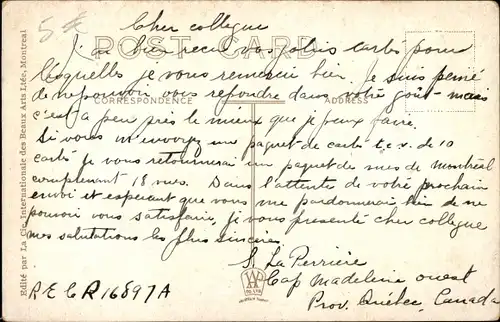 5
Cher collegue
POST CARD
J'ai bien recu vos jolis cartes pour
lesquelles je vous remercie bien. Je suis peiné
de ne pouvoir vous repondre dans votre goût - mais
CORRESPONDENCE
ADDRESS
c'est a peu près le mieux que je peux faire.
Si vous m'envoyez un paquet de cartes t.c.v. de 10
carts je vous retournerai un paquet de mes de Montréal
comprenant 18 vues. Dans l'attente de votre prochain
envoi et esperant que vous me pardonnerai bien de ne
pouvoir vous satisfaire, je vous presente cher collegue
mes salutations les plus sinceres
S. La Perrière
Cap Madeleine ouest
Prov. Quebec, Canada
R E C R 16897 A
Edité par La Cie. Internationale des Beaux Arts Ltée, Montreal